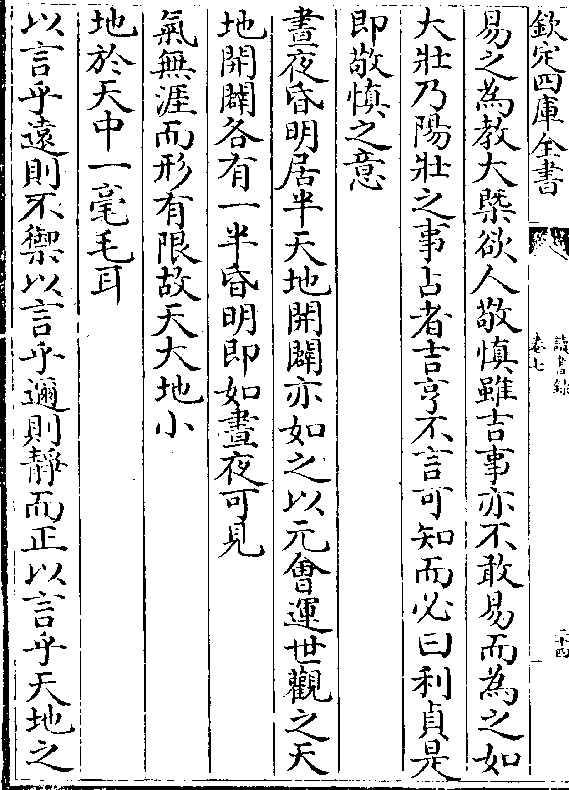 欽定四庫全書
讀書錄
卷七
二十四
易之為教大槩欲人敬慎雖吉事亦不敢易而為之如
大壯乃陽壯之事占者吉亨不言可知而必曰利貞是
即敬慎之意
晝夜昏明居半天地開闢亦如之以元會運世觀之天
地開闢各有一半昏明即如晝夜可見
氣無涯而形有限故天大地小
地於天中一毫毛耳
以言乎遠則不禦以言乎邇則靜而正以言乎天地之